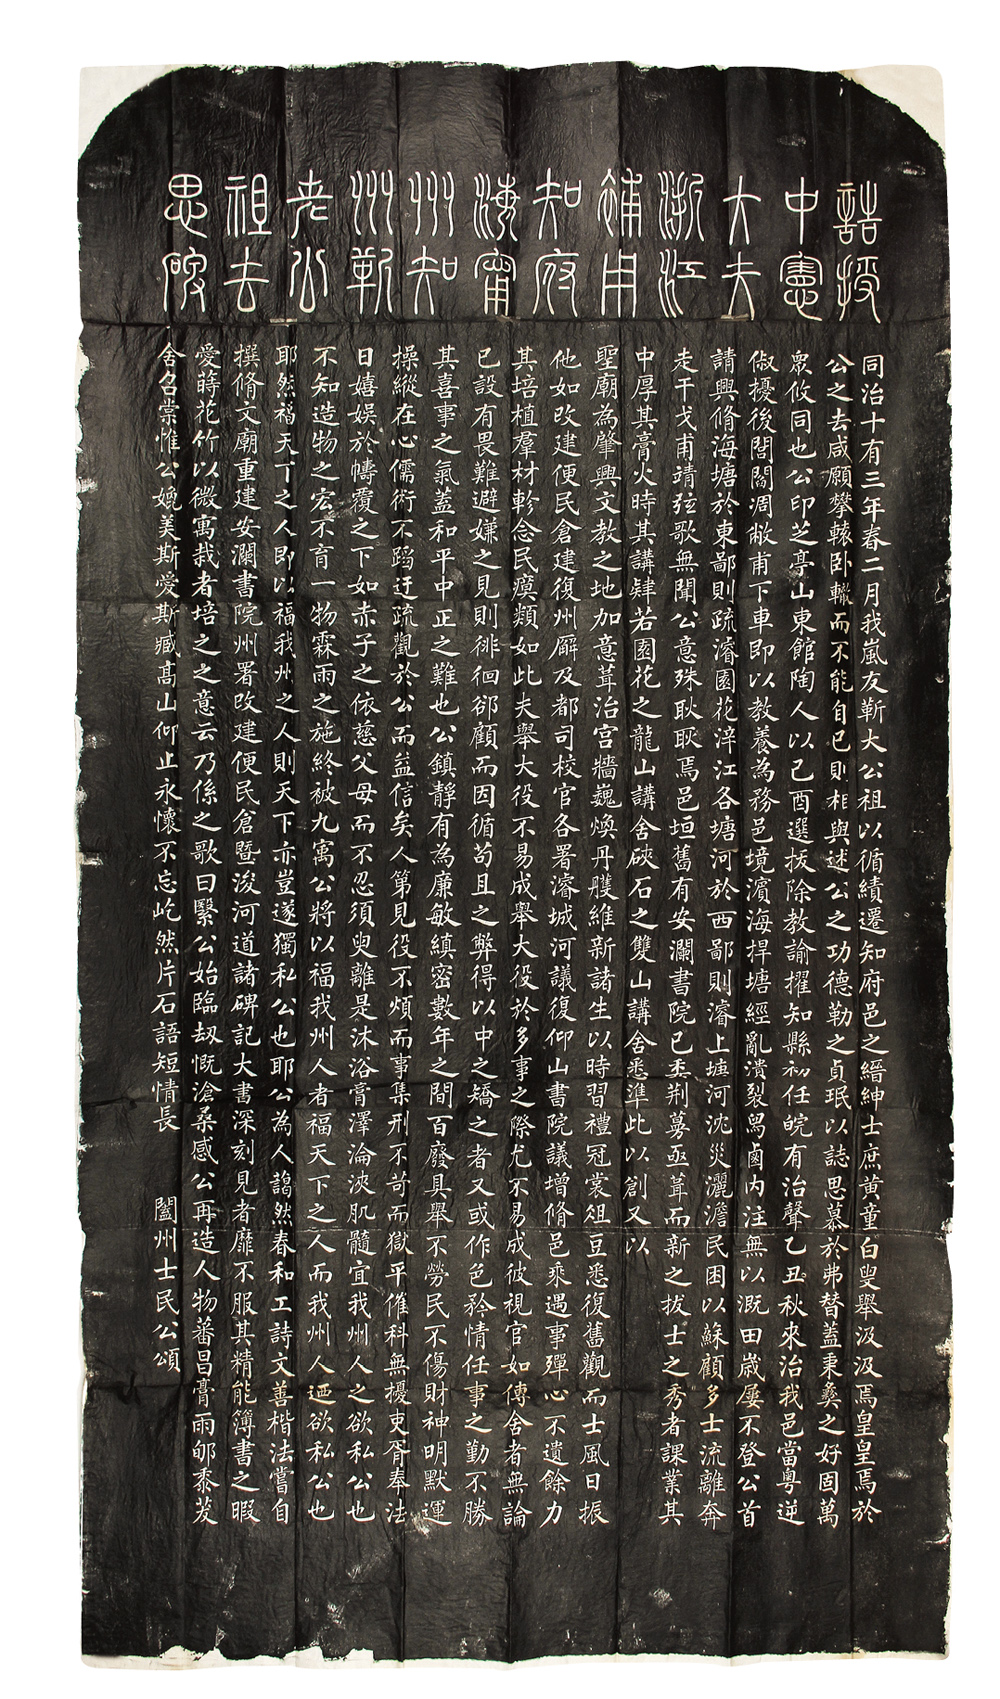 誥授
中憲
大夫
浙江
補用
知府
海甯
州知
州靳
老公
祖去
思碑
同治十有三年春二月我嵐友靳大公祖以循績遷知府邑之縉紳士庶黄童白叟舉汲汲焉皇皇焉於
公之去咸願攀轅卧轍而不能自已則相與述公之功德勒之貞珉以誌思慕於弗替蓋秉彝之好固萬
眾攸同也公印芝亭山東館陶人以己酉選拔除教諭擢知縣初任皖有治聲乙丑秋來治我邑當粤逆
俶擾後閭閻凋敝甫下車即以教養為務邑境濱海捍塘經亂潰裂舄鹵内注無以溉田歳屢不登公首
請興脩海塘於東鄙則疏濬園花淬江各塘河於西鄙則濬上塘河沈災灑澹民困以蘇顧多士流離奔
走干戈甫靖弦歌無聞公意殊耿耿焉邑垣舊有安瀾書院已柔荆蔓亟葺而新之拔士之秀者課業其
中厚其膏火時其講肄若園花之龍山講舍硤石之雙山講舍悉準此以創又以
聖廟為肇興文教之地加意葺治宫牆巍煥丹雘維新諸生以時習禮冠裳俎豆悉復舊觀而士風日振
他如改建便民倉建復州廨及都司校官各署濬城河議復仰山書院議增脩邑乘遇事殫心不遺餘力
其培植羣材軫念民瘼類如此夫舉大役不易成舉大役於多事之際尤不易成彼視官如傳舍者無論
已設有畏難避嫌之見則徘徊郤顧而因循苟且之弊得以中之矯之者又或作色矜情任事之勤不勝
其喜事之氣蓋和平中正之難也公鎮靜有為廉敏縝密數年之間百廢具舉不勞民不傷財神明默運
操縱在心儒術不蹈迂疏觀於公而益信矣人第見役不煩而事集刑不苛而獄平催科無擾吏胥奉法
日嬉娱於幬覆之下如赤子之依慈父母而不忍須臾離是沐浴膏澤淪浹肌髓宜我州人之欲私公也
不知造物之宏不育一物霖雨之施終被九寓公將以福我州人者福天下之人而我州人迺欲私公也
耶然福天下之人即以福我州之人則天下亦豈遂獨私公也耶公為人藹然春和工詩文善楷法嘗自
撰脩文廟重建安瀾書院州署改建便民倉暨浚河道諸碑記大書深刻見者靡不服其精能簿書之暇
愛蒔花竹以微寓栽者培之之意云乃係之歌曰繄公始臨刼慨滄桑感公再造人物蕃昌膏雨郇黍芟
舍召棠惟公媲美斯愛斯臧高山仰止永懷不忘屹然片石語短情長 闔州士民公頌